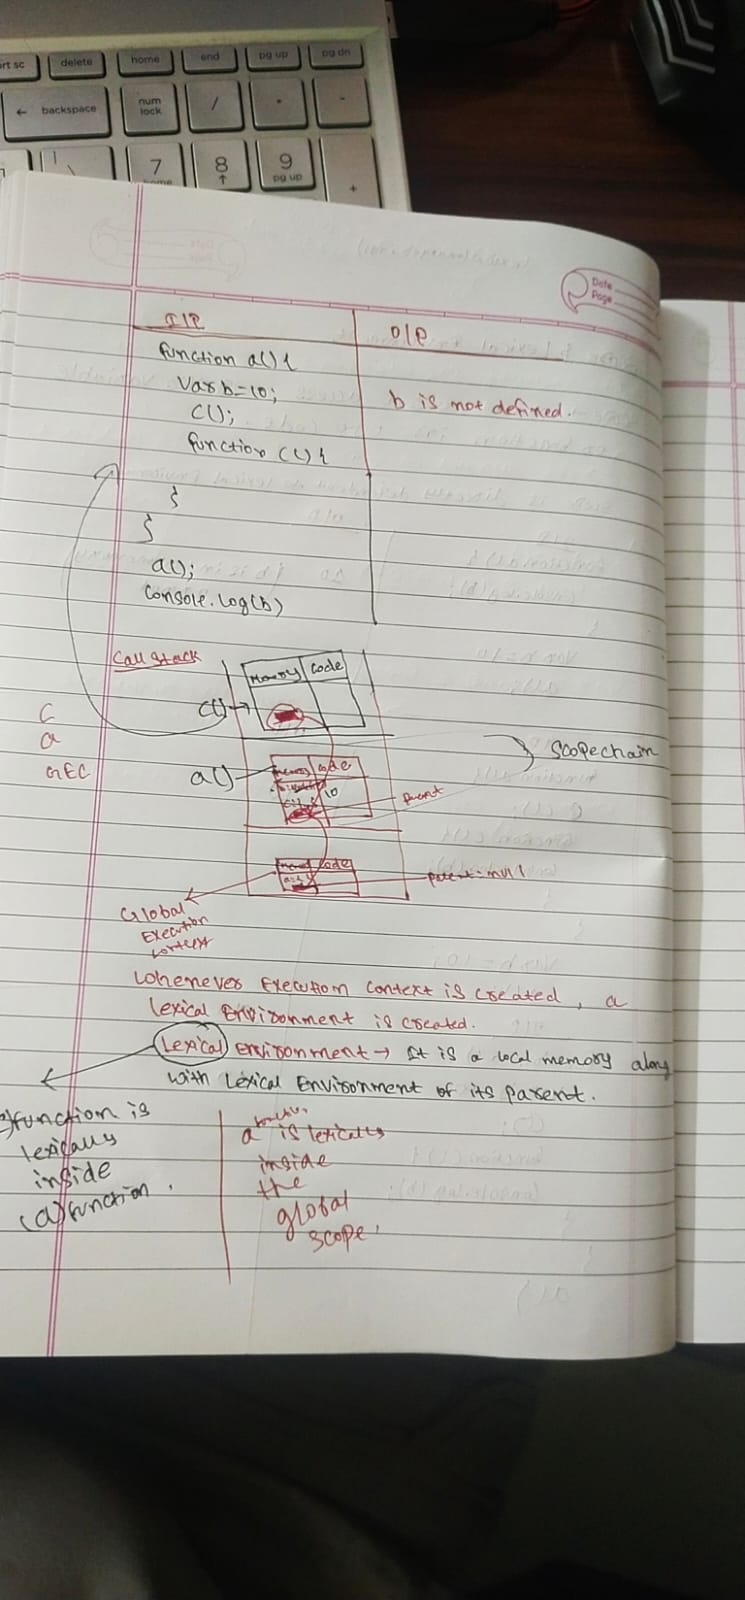 rt sc
delete
home
end
pg up
pg dn
← backspace
num lock
/
*
-
7
8
9
home
↑
pg up
+
Date
Page
I/P
O/P
function a() {
Var b=10;
b is not defined.
c();
function c() {
}
}
a();
Console.log(b)
Call stack
Memory
Code
c()→
C
a
GEC
a()
memory
code
10
Parent
Scopechain
code
Parent:null
Global
Execution
context
Whenever Execution Context is created, a
lexical Environment is created.
Lexical Environment → It is a local memory along
with Lexical Environment of its Parent.
function is
lexically
inside
(a)function.
a is lexically
inside
the
global
scope.